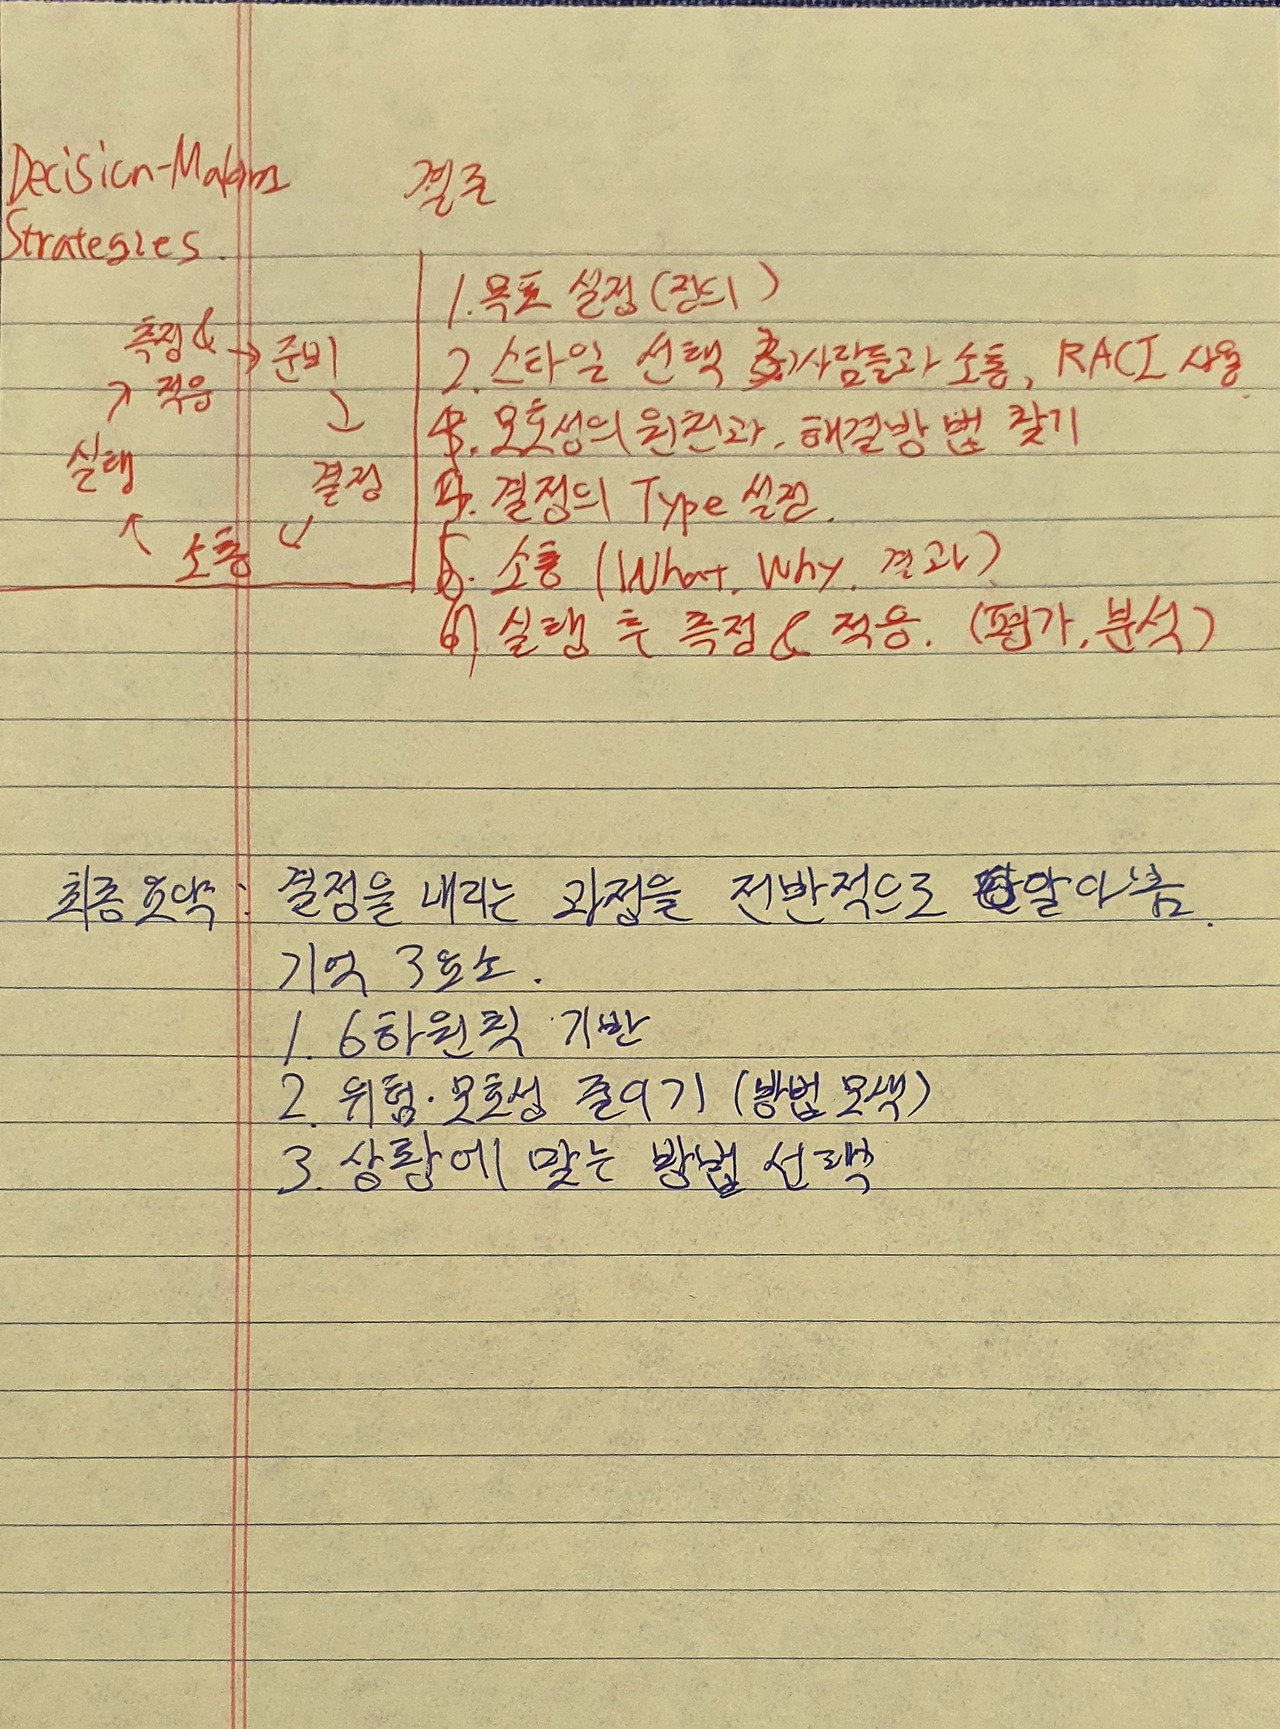 Decision-Making
Strategies.
결론
측정 &
적응
→ 준비
↗
↘
실행
결정
↖
↙
소통
1. 목표 설정 (정의)
2. 스타일 선택 3) 사람들과 소통, RACI 사용
4. 모호성의 원천과, 해결방법 찾기
5. 결정의 Type 설정.
6. 소통 (What, Why, 결과)
6) 실행 후 측정 & 적응. (평가, 분석)
최종 요약 : 결정을 내리는 과정을 전반적으로 알아봄.
기억 3요소.
1. 6하원칙 기반
2. 위험·모호성 줄이기 (방법 모색)
3. 상황에 맞는 방법 선택